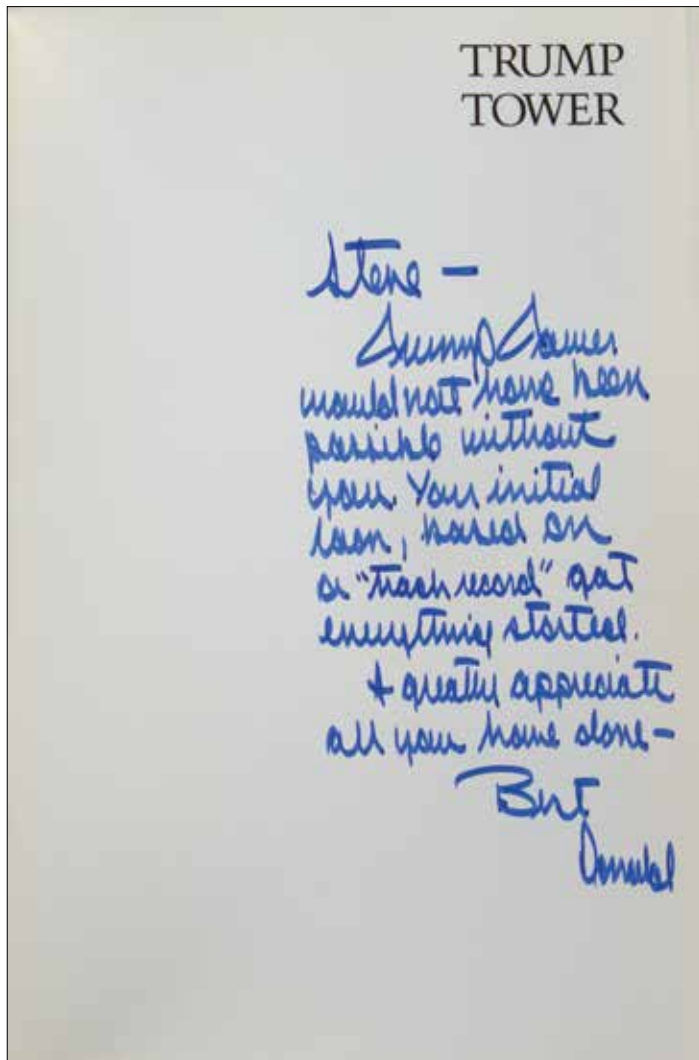 TRUMP
TOWER
Steve –
Trump Tower
would not have been
possible without
you. Your initial
loan, based on
a "track record" got
everything started.
I greatly appreciate
all you have done –
Best
Donald